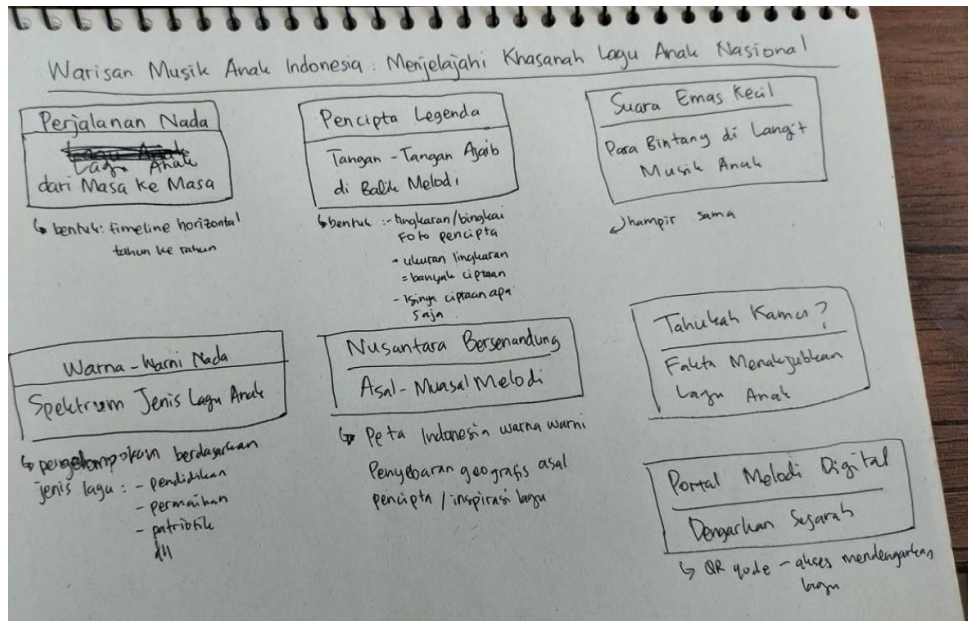 Warisan Musik Anak Indonesia : Menjelajahi Khasanah Lagu Anak Nasional
Perjalanan Nada
Lagu Anak
dari Masa ke Masa
↳ bentuk: timeline horizontal
tahun ke tahun
Pencipta Legenda
Tangan-Tangan Ajaib
di Balik Melodi
↳ bentuk :- lingkaran/bingkai
Foto pencipta
- ukuran lingkaran
= banyak ciptaan
- isinya ciptaan apa
saja
Suara Emas Kecil
Para Bintang di Langit
Musik Anak
↳ hampir sama
Warna-Warni Nada
Spektrum Jenis Lagu Anak
↳ pengelompokan berdasarkan
jenis lagu : - pendidikan
- permainan
- patriotik
dll
Nusantara Bersenandung
Asal-Muasal Melodi
↳ Peta Indonesia warna warni
Penyebaran geografis asal
pencipta / inspirasi lagu
Tahukah Kamu?
Fakta Menakjubkan
Lagu Anak
Portal Melodi Digital
Dengarkan Sejarah
↳ QR qode - akses mendengarkan
lagu